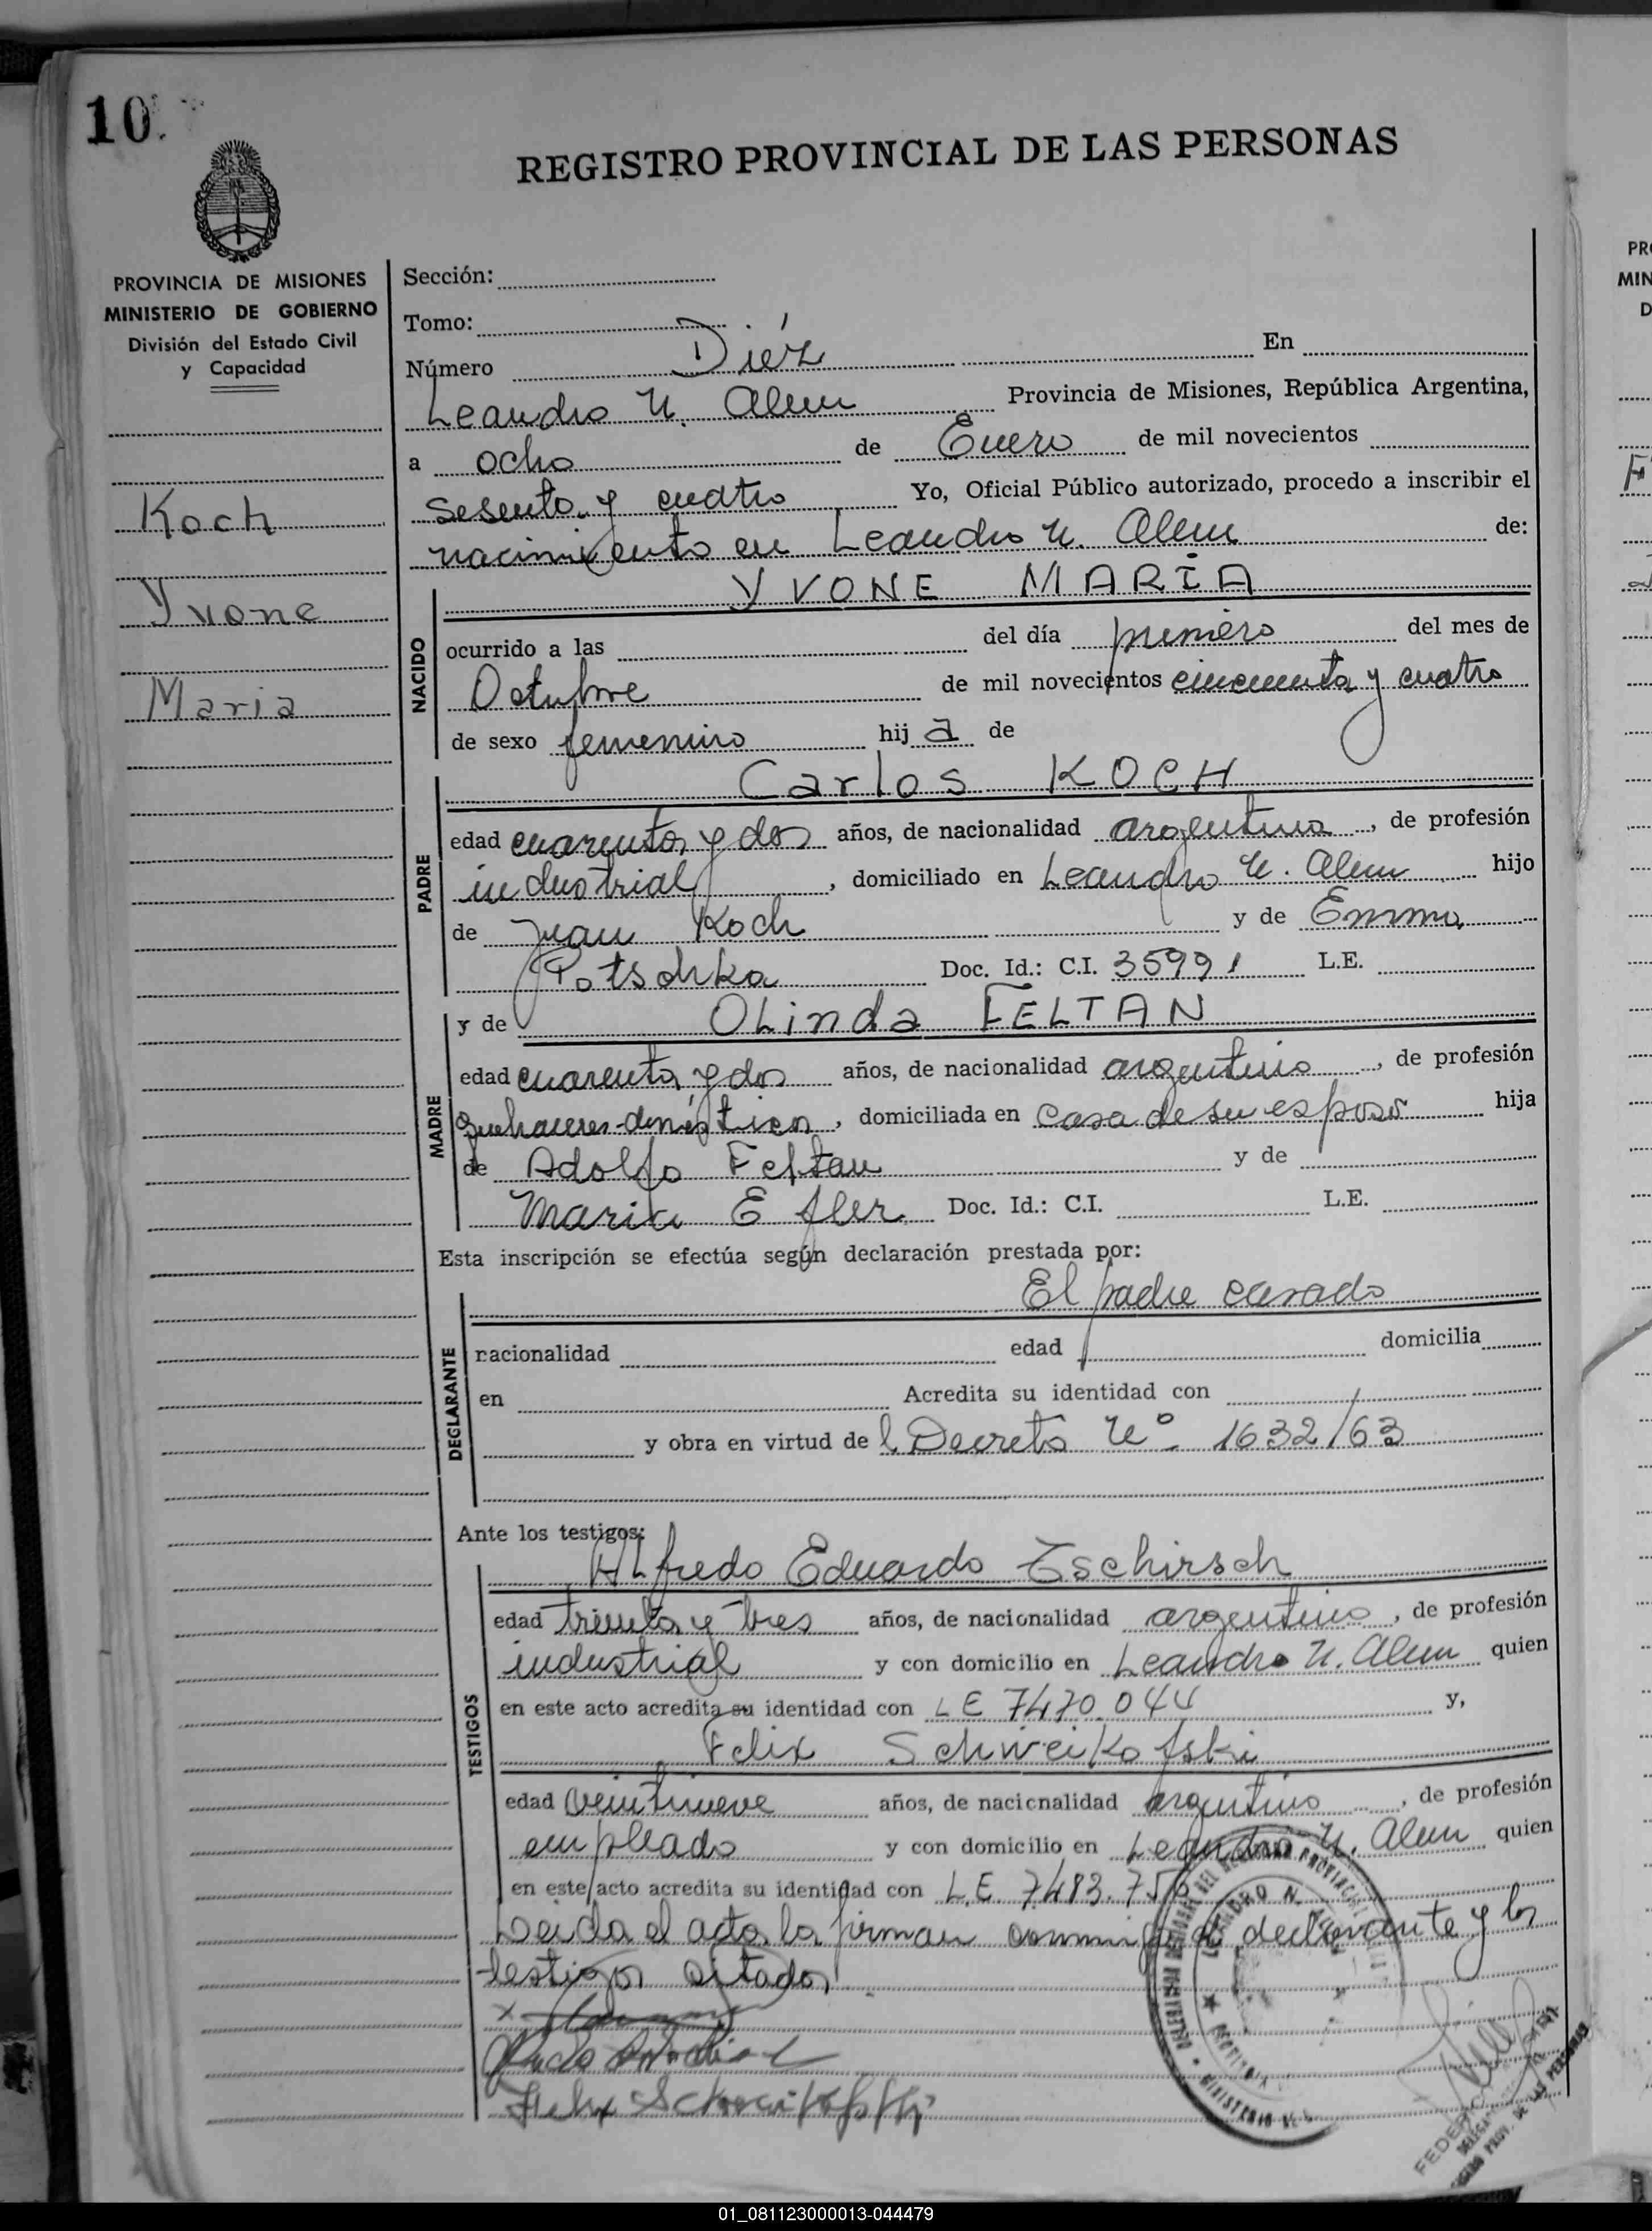 10.
REGISTRO PROVINCIAL DE LAS PERSONAS
PROVINCIA DE MISIONES
MINISTERIO DE GOBIERNO
División del Estado Civil
y Capacidad
Koch
Yvone
Maria
Sección:
Tomo:
Número Diéz En
Leandro N. Alem Provincia de Misiones, República Argentina,
a ocho de Enero de mil novecientos
sesenta y cuatro Yo, Oficial Público autorizado, procedo a inscribir el
nacimiento en Leandro N. Alem de:
NACIDO
YVONE MARIA
ocurrido a las del día primero del mes de
Octubre de mil novecientos cincuenta y cuatro
de sexo femenino hij a de
PADRE
Carlos KOCH
edad cuarenta y dos años, de nacionalidad argentina, de profesión
industrial, domiciliado en Leandro N. Alem hijo
de Juan Koch y de Emma
Potschka Doc. Id.: C.I. 35991 L.E.
MADRE
y de OLinda FELTAN
edad cuarenta y dos años, de nacionalidad argentina, de profesión
quehaceres domésticos, domiciliada en casa de su esposo hija
de Adolfo Feltan y de
Maria Efler Doc. Id.: C.I. L.E.
Esta inscripción se efectúa según declaración prestada por:
DECLARANTE
El padre casado
nacionalidad edad domicilia
en Acredita su identidad con
y obra en virtud del Decreto Nº 1632/63
Ante los testigos:
TESTIGOS
ALfredo Eduardo Tschirsch
edad treinta y tres años, de nacionalidad argentino, de profesión
industrial y con domicilio en Leandro N. Alem quien
en este acto acredita su identidad con LE 7470.044 y,
Felix Schweikofski
edad veintinueve años, de nacionalidad argentino, de profesión
empleado y con domicilio en Leandro N. Alem quien
en este acto acredita su identidad con L.E. 7483.756
Leida el acta, la firman conmigo el declarante y los
testigos citados
Felix Schweikofski
01_081123000013-044479